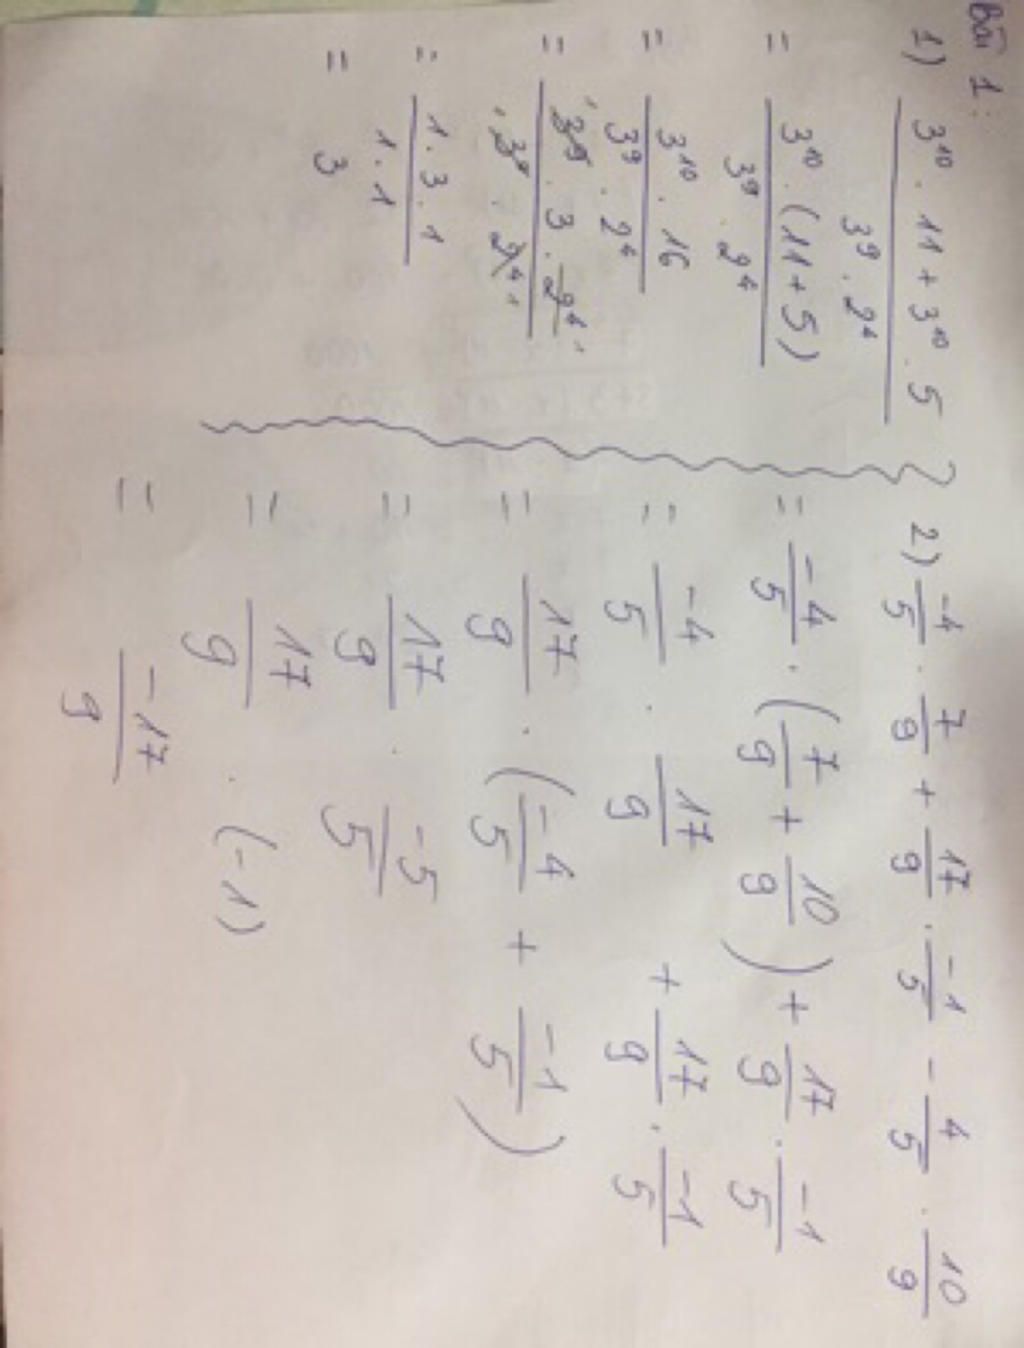 Bài 1:
1) (3¹⁰ . 11 + 3¹⁰ . 5) / (3⁹ . 2⁴)
= (3¹⁰ . (11 + 5)) / (3⁹ . 2⁴)
= (3¹⁰ . 16) / (3⁹ . 2⁴)
= (3⁹ . 3 . 2⁴) / (3⁹ . 2⁴)
= (1 . 3 . 1) / (1 . 1)
= 3
2) -4/5 . 7/9 + 17/9 . -1/5 - 4/5 . 10/9
= -4/5 . (7/9 + 10/9) + 17/9 . -1/5
= -4/5 . 17/9 + 17/9 . -1/5
= 17/9 . (-4/5 + -1/5)
= 17/9 . -5/5
= 17/9 . (-1)
= -17/9